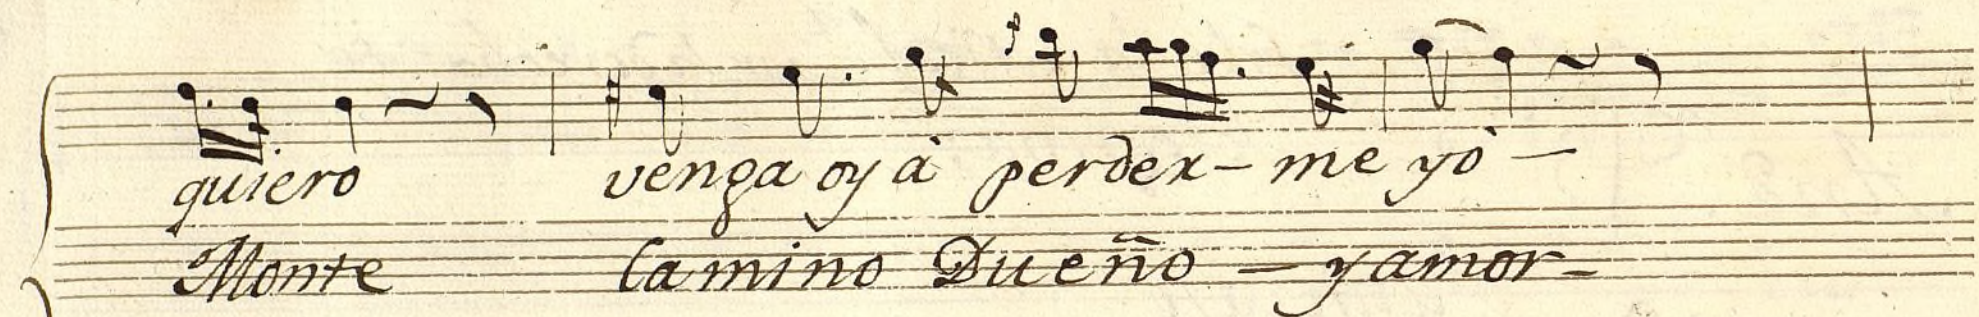 quiero venga oy à perder-me yò -
Monte Camino Dueño - y amor -